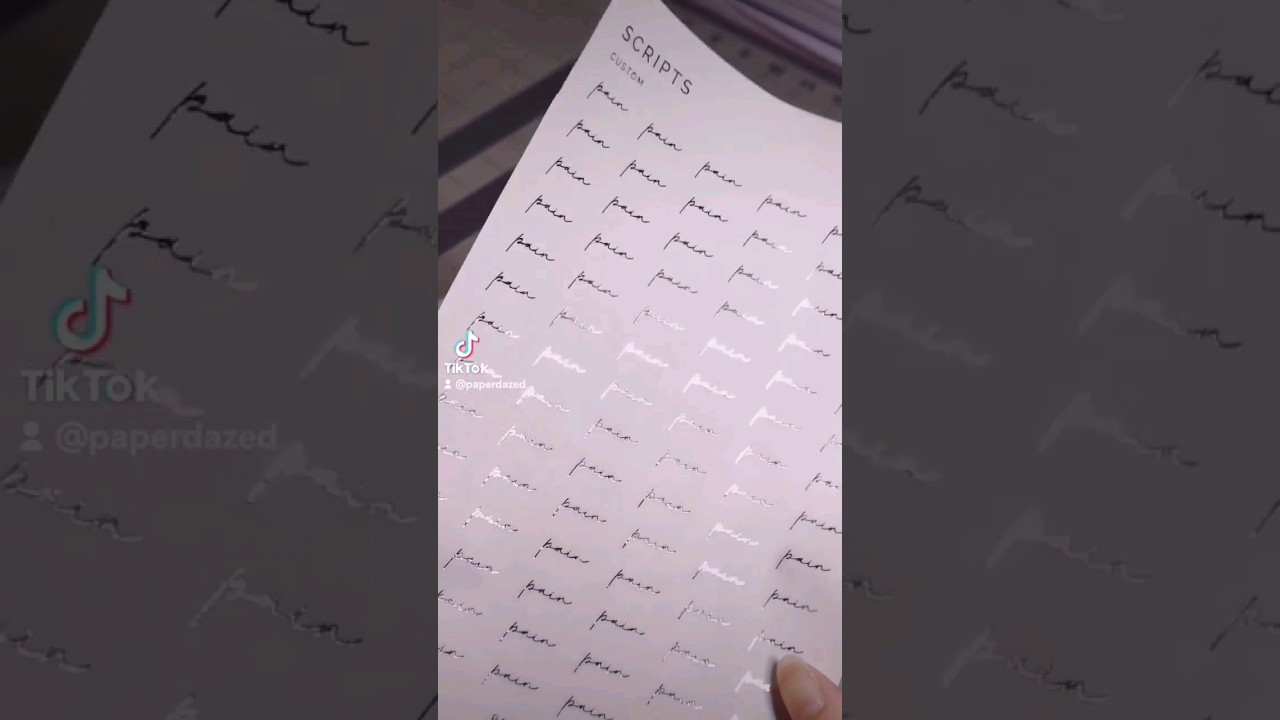 SCRIPTS
CUSTOM
pain pain pain pain
pain pain pain pain
pain pain pain pain pain
pain pain pain pain pain
pain pain pain pain pain
pain pain pain pain pain
pain pain pain pain pain
pain pain pain pain
pain pain pain pain
pain pain pain pain pain
pain pain pain pain pain
pain pain pain pain pain
pain pain pain pain pain
pain pain pain
TikTok
@paperdazed